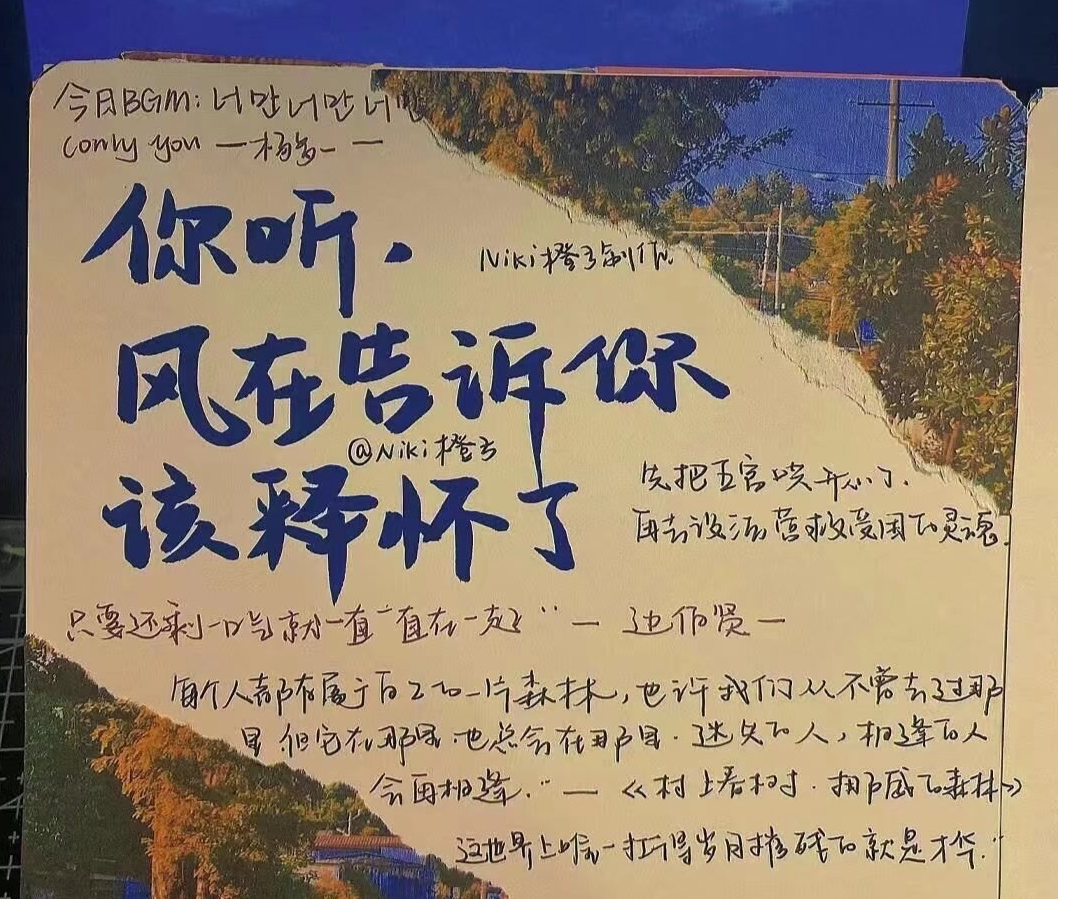 今日BGM:너만너만너만
conly you 一杨多一一
你听,
Niki橙子制作
风在告诉你
@Niki橙子
该释怀了
先把五官哄开心了.
再去设法营救受困的灵魂.
只要还剩一口气就一直一直在一起" 一 边伯贤一
每个人都有属于自己的一片森林,也许我们从不曾去过那
里 但它在那里.也总会在那里.迷失的人,相逢的人
会再相逢." 一 《村上春树.挪威的森林》
这世界上唯一扛得岁月摧残的就是才华."